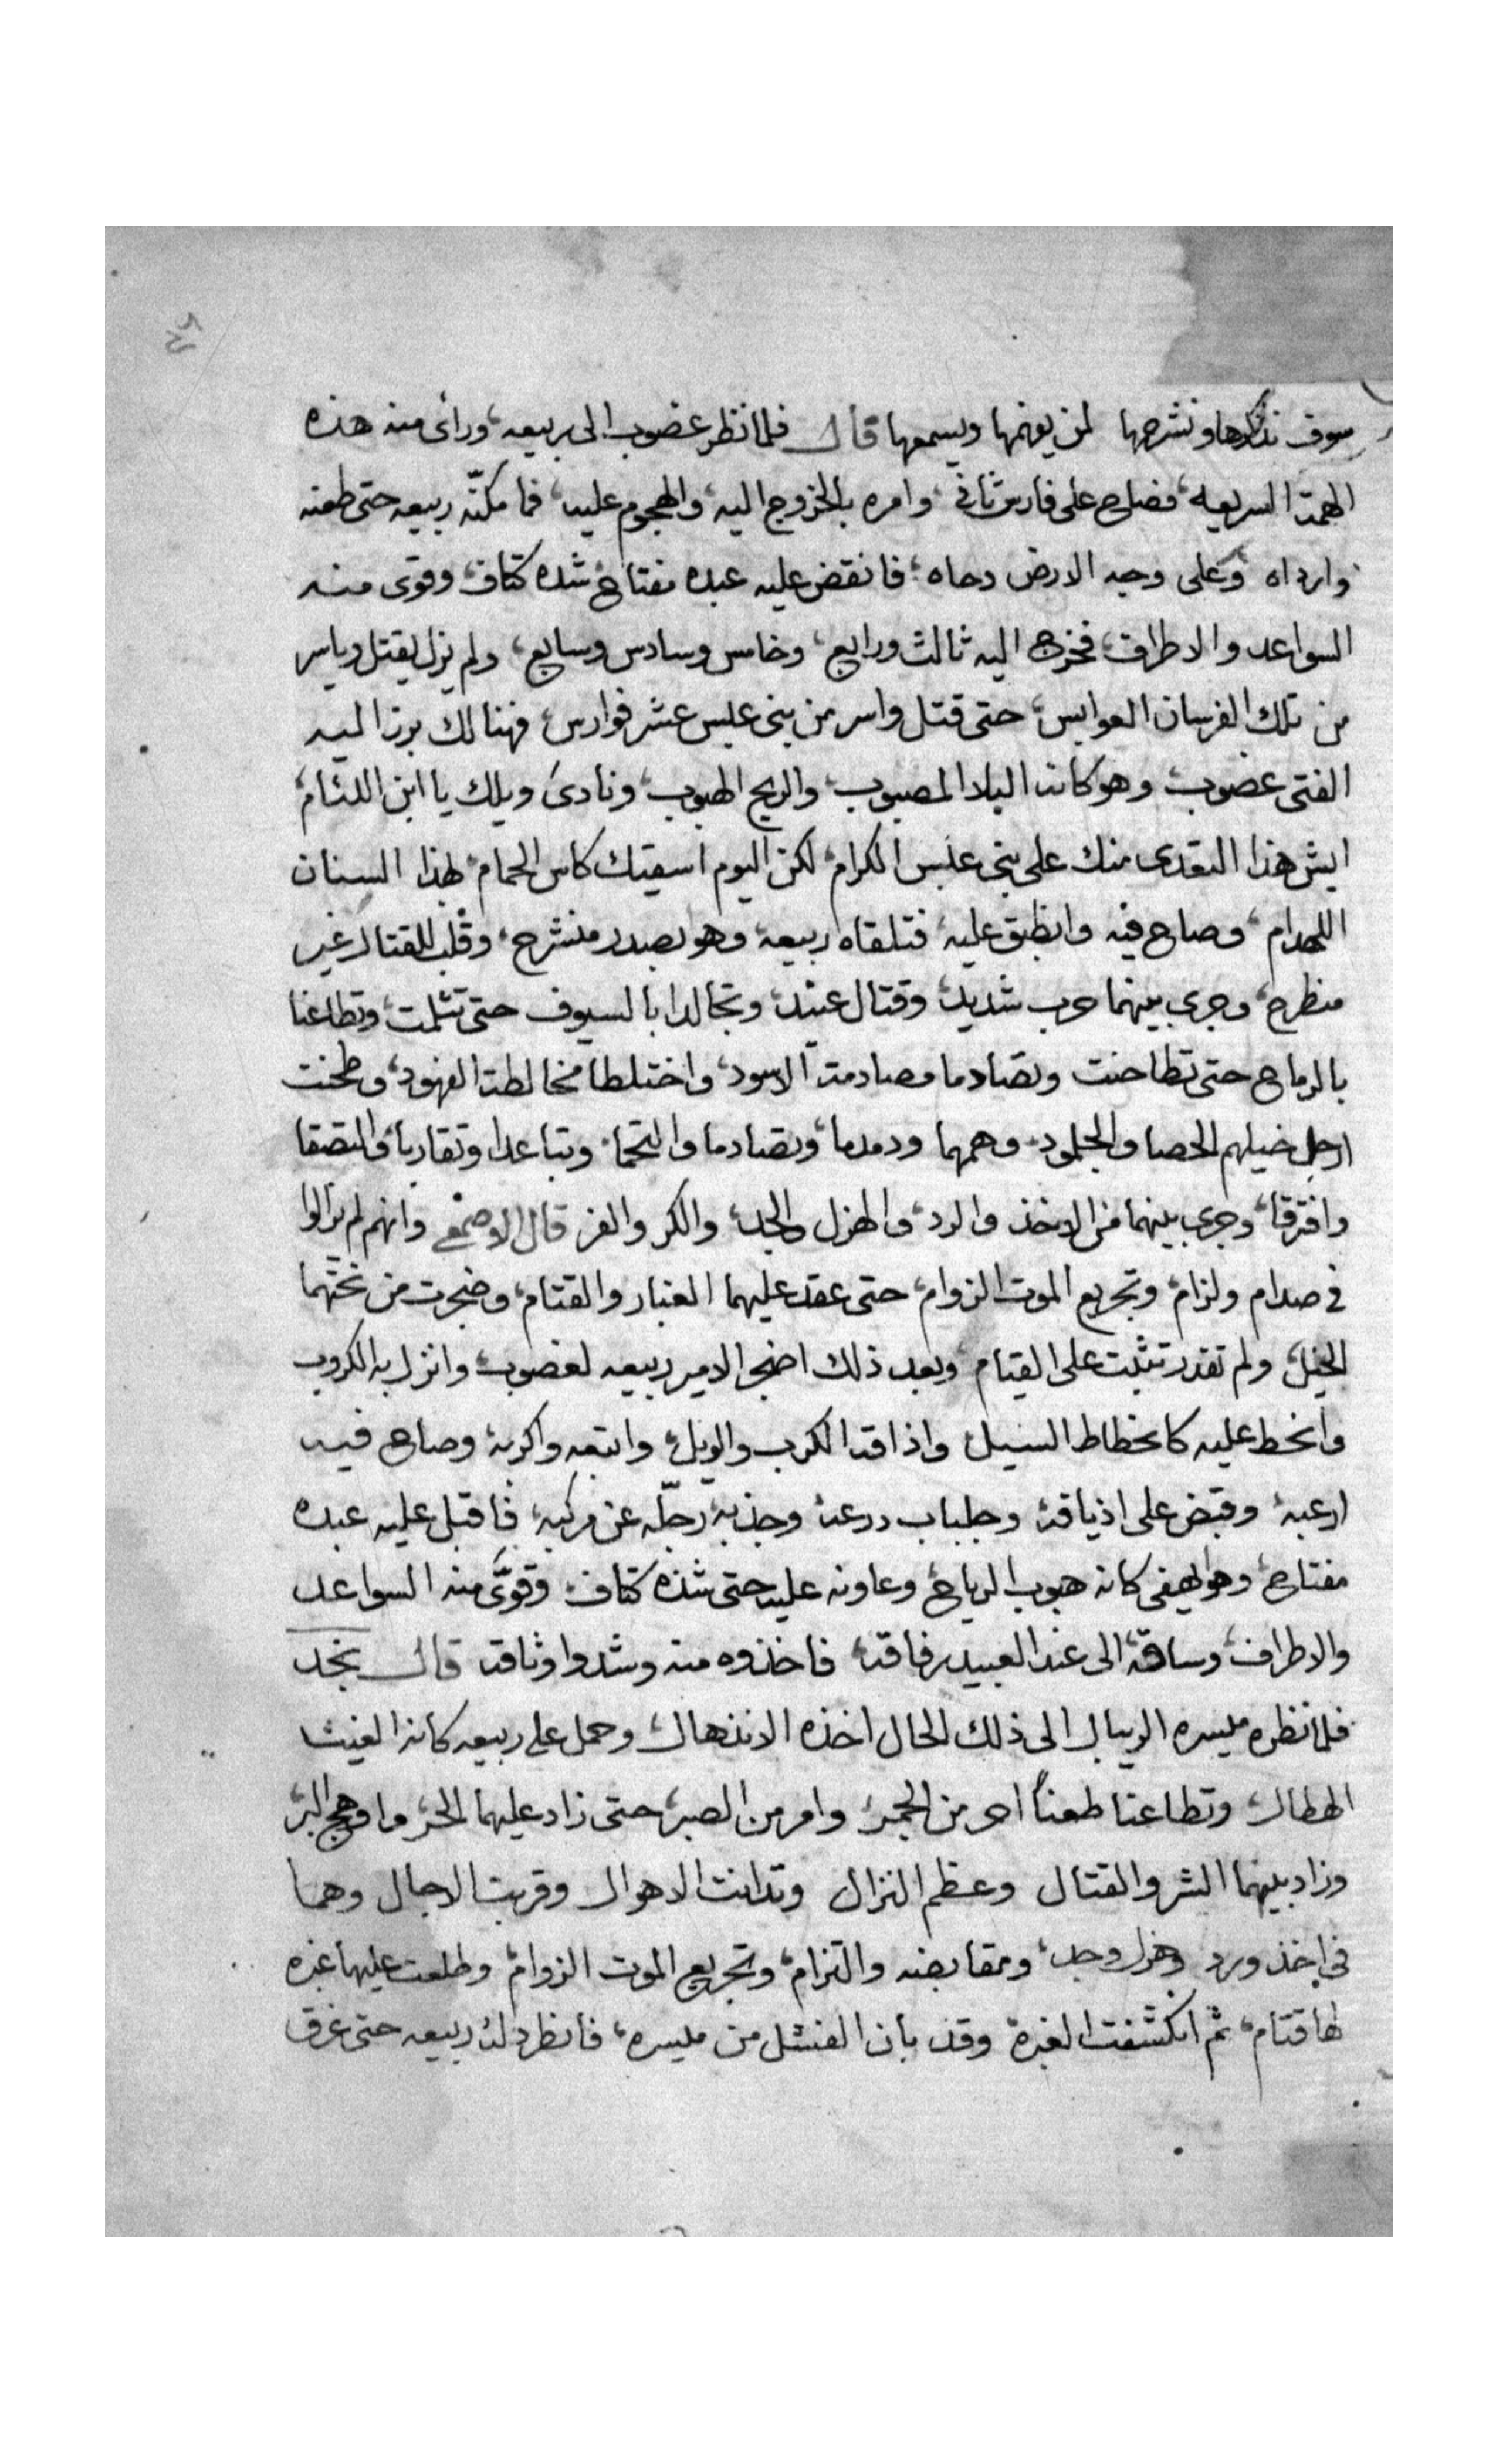 سوف نذكرها ونشرحها لمن يفهمها ويسمعها قال فلما نظر غضوب الى ربيعه، وراى منه هذه
الهمة السريعه، فصاح على فارس ثانى، وامره بالخروج اليه، والهجوم عليه، فما مكنّه ربيعه حتى طعنه
وارداه وعلى وجه الارض دحاه، فانقض عليه عبده مفتاح شده كتاف، وقوى منه
السواعد والاطراف، فخرج اليه ثالث ورابع، وخامس وسادس وسابع، ولم يزل يقتل وياسر
من تلك الفرسان العوابس، حتى قتل واسر من بنى عبس عشر فوارس، فهنالك برز اليه
الفتى غضوب، وهو كانه البلا المصبوب، والريح الهبوب، ونادى ويلك يا ابن اللئام،
ايش هذا التعدى منك على بنى عبس الكرام، لكن اليوم اسقيك كاس الحمام، بهذا السنان
اللهدام، وصاح فيه وانطبق عليه، فتلقاه ربيعه، وهو بصدر منشرح، وقلب للقتال غير
منطرح، وجرى بينهما حرب شديد، وقتال عنيد، وتجالدا بالسيوف حتى تثلمت، وتطاعنا
بالرماح حتى تطاحنت وتصادما مصادمة الاسود، واختلطا مخالطة الفهود، وطحنت
ارجل خيلهم الحصا والجلمود، وهمهما ودمدما، وتصادما والتحما، وتباعدا وتقاربا، والتصقا
وافترقا، وجرى بينهما من الاخذ والرد، والهزل والجد، والكر والفر قال الاصمعى وانهم لم يزالوا
فى صدام ولزام، وتجريع الموت الزوام، حتى عقد عليهما الغبار والقتام، وضجرت من تحتهما
الخيل، ولم تقدر تثبت على القيام، وبعد ذلك اضجر الامير ربيعه لغضوب، وانزل به الكروب
وانحط عليه كانحطاط السيل واذاقه الكرب والويل، واتعبه واكربه، وصاح فيه
ارعبه، وقبض على اذياقه، وجلباب درعه، وجذبه رجلّه عن مركبه، فاقبل عليه عبده
مفتاح، وهو يهفى كانه هبوب الرياح، وعاونه عليه حتى شده كتاف، وقوّى منه السواعد
والاطراف، وساقه الى عند العبيد رفاقه، فاخذوه منه وشدوا وثاقه قال نجد
فلما نظره ميسره الريبال الى ذلك الحال، اخذه الانذهال، وحمل على ربيعه كانه الغيث
الهطال، وتطاعنا طعناً احر من الجمر، وامر من الصبر، حتى زاد عليهما الحر، واوهج البر،
وزاد بينهما الشر والقتال وعظم النزال وتدانت الاهوال وقربت الاجال وهما
فى اخذ ورد وهزل وجد، ومقابضه والتزام، وتجريع الموت الزوام، وطلعت عليهما غبره
لها قتام، ثم انكشفت الغبرة وقد بان الفشل من ميسره، فانظر لذلك ربيعه حتى غرق